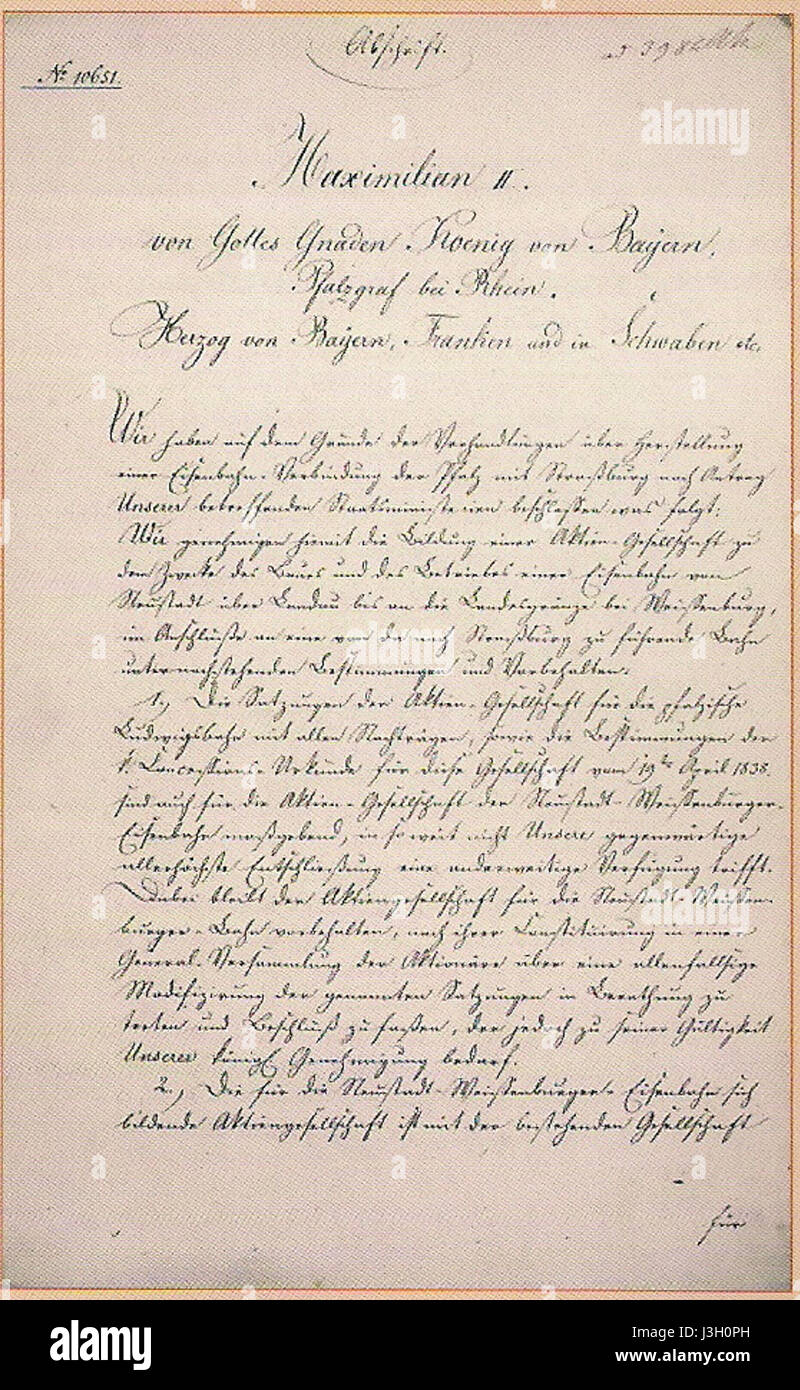 Abschrift.
№ 10651.
Maximilian II.
von Gottes Gnaden Koenig von Bayern,
Pfalzgraf bei Rhein.
Herzog von Bayern, Franken und in Schwaben etc.
Wir haben auf dem Grunde der Verhandlungen über Herstellung
einer Eisenbahn-Verbindung der Pfalz mit Straßburg nach Antrag
Unserer betreffenden Staatsministerien beschlossen was folgt:
Wir genehmigen hiemit die Bildung einer Aktien-Gesellschaft zu
dem Zwecke des Baues und des Betriebes einer Eisenbahn von
Neustadt über Landau bis an die Landesgränze bei Weissenburg,
im Anschluße an eine von da nach Straßburg zu führende Bahn
unter nachstehenden Bestimmungen und Vorbehalten:
1.) Die Satzungen der Aktien-Gesellschaft für die pfälzische
Ludwigsbahn mit allen Nachträgen, sowie die Bestimmungen der
Concessions-Urkunde für diese Gesellschaft vom 19ten April 1838.
sind auch für die Aktien-Gesellschaft der Neustadt-Weissenburger-
Eisenbahn maßgebend, in so weit nicht Unsere gegenwärtige
allerhöchste Entschließung eine anderweitige Verfügung trifft.
Dabei bleibt der Aktiengesellschaft für die Neustadt-Weissen-
burger-Bahn vorbehalten, nach ihrer Constituirung in einer
General-Versammlung der Aktionäre über eine allenfallsige
Modifizirung der genannten Satzungen in Berathung zu
treten und Beschluß zu faßen, der jedoch zu seiner Gültigkeit
Unserer königl Genehmigung bedarf.
2.) Die für die Neustadt-Weissenburger-Eisenbahn sich
bildende Aktiengesellschaft ist mit der bestehenden Gesellschaft
für
alamy
a
alamy
Image ID: J3H0PH
www.alamy.com